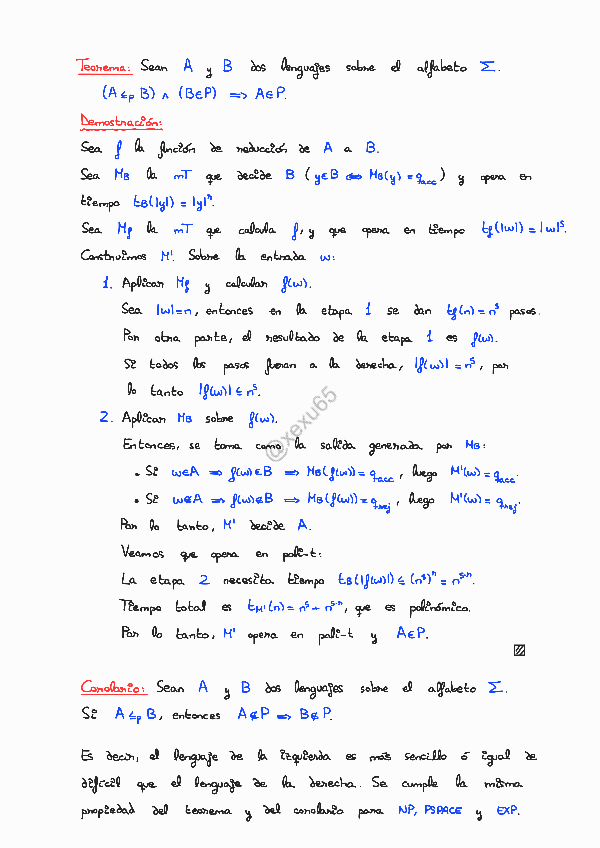 Teorema: Sean A y B dos lenguajes sobre el alfabeto Σ.
(A ≤p B) ∧ (B∈P) ⟹ A∈P.
Demostración:
Sea f la función de reducción de A a B.
Sea MB la mT que decide B (y∈B ⟺ MB(y) = qacc) y opera en
tiempo tB(|y|) = |y|^r.
Sea Mf la mT que calcula f, y que opera en tiempo tf(|w|) = |w|^s.
Construimos M'. Sobre la entrada w:
1. Aplicar Mf y calcular f(w).
Sea |w|=n, entonces en la etapa 1 se dan tf(n) = n^s pasos.
Por otra parte, el resultado de la etapa 1 es f(w).
Si todos los pasos fueran a la derecha, |f(w)| = n^s, por
lo tanto |f(w)| ≤ n^s.
@xexu65
2. Aplicar MB sobre f(w).
Entonces, se toma como la salida generada por MB:
• Si w∈A ⟹ f(w)∈B ⟹ MB(f(w)) = qacc, luego M'(w) = qacc.
• Si w∉A ⟹ f(w)∉B ⟹ MB(f(w)) = qrej, luego M'(w) = qrej.
Por lo tanto, M' decide A.
Veamos que opera en poli-t:
La etapa 2 necesita tiempo tB(|f(w)|) ≤ (n^s)^r = n^s·r.
Tiempo total es tM'(n) = n^s + n^s·r, que es polinómico.
Por lo tanto, M' opera en poli-t y A∈P.
Corolario: Sean A y B dos lenguajes sobre el alfabeto Σ.
Si A ≤p B, entonces A∉P ⟹ B∉P.
Es decir, el lenguaje de la izquierda es más sencillo ó igual de
difícil que el lenguaje de la derecha. Se cumple la misma
propiedad del teorema y del corolario para NP, PSPACE y EXP.